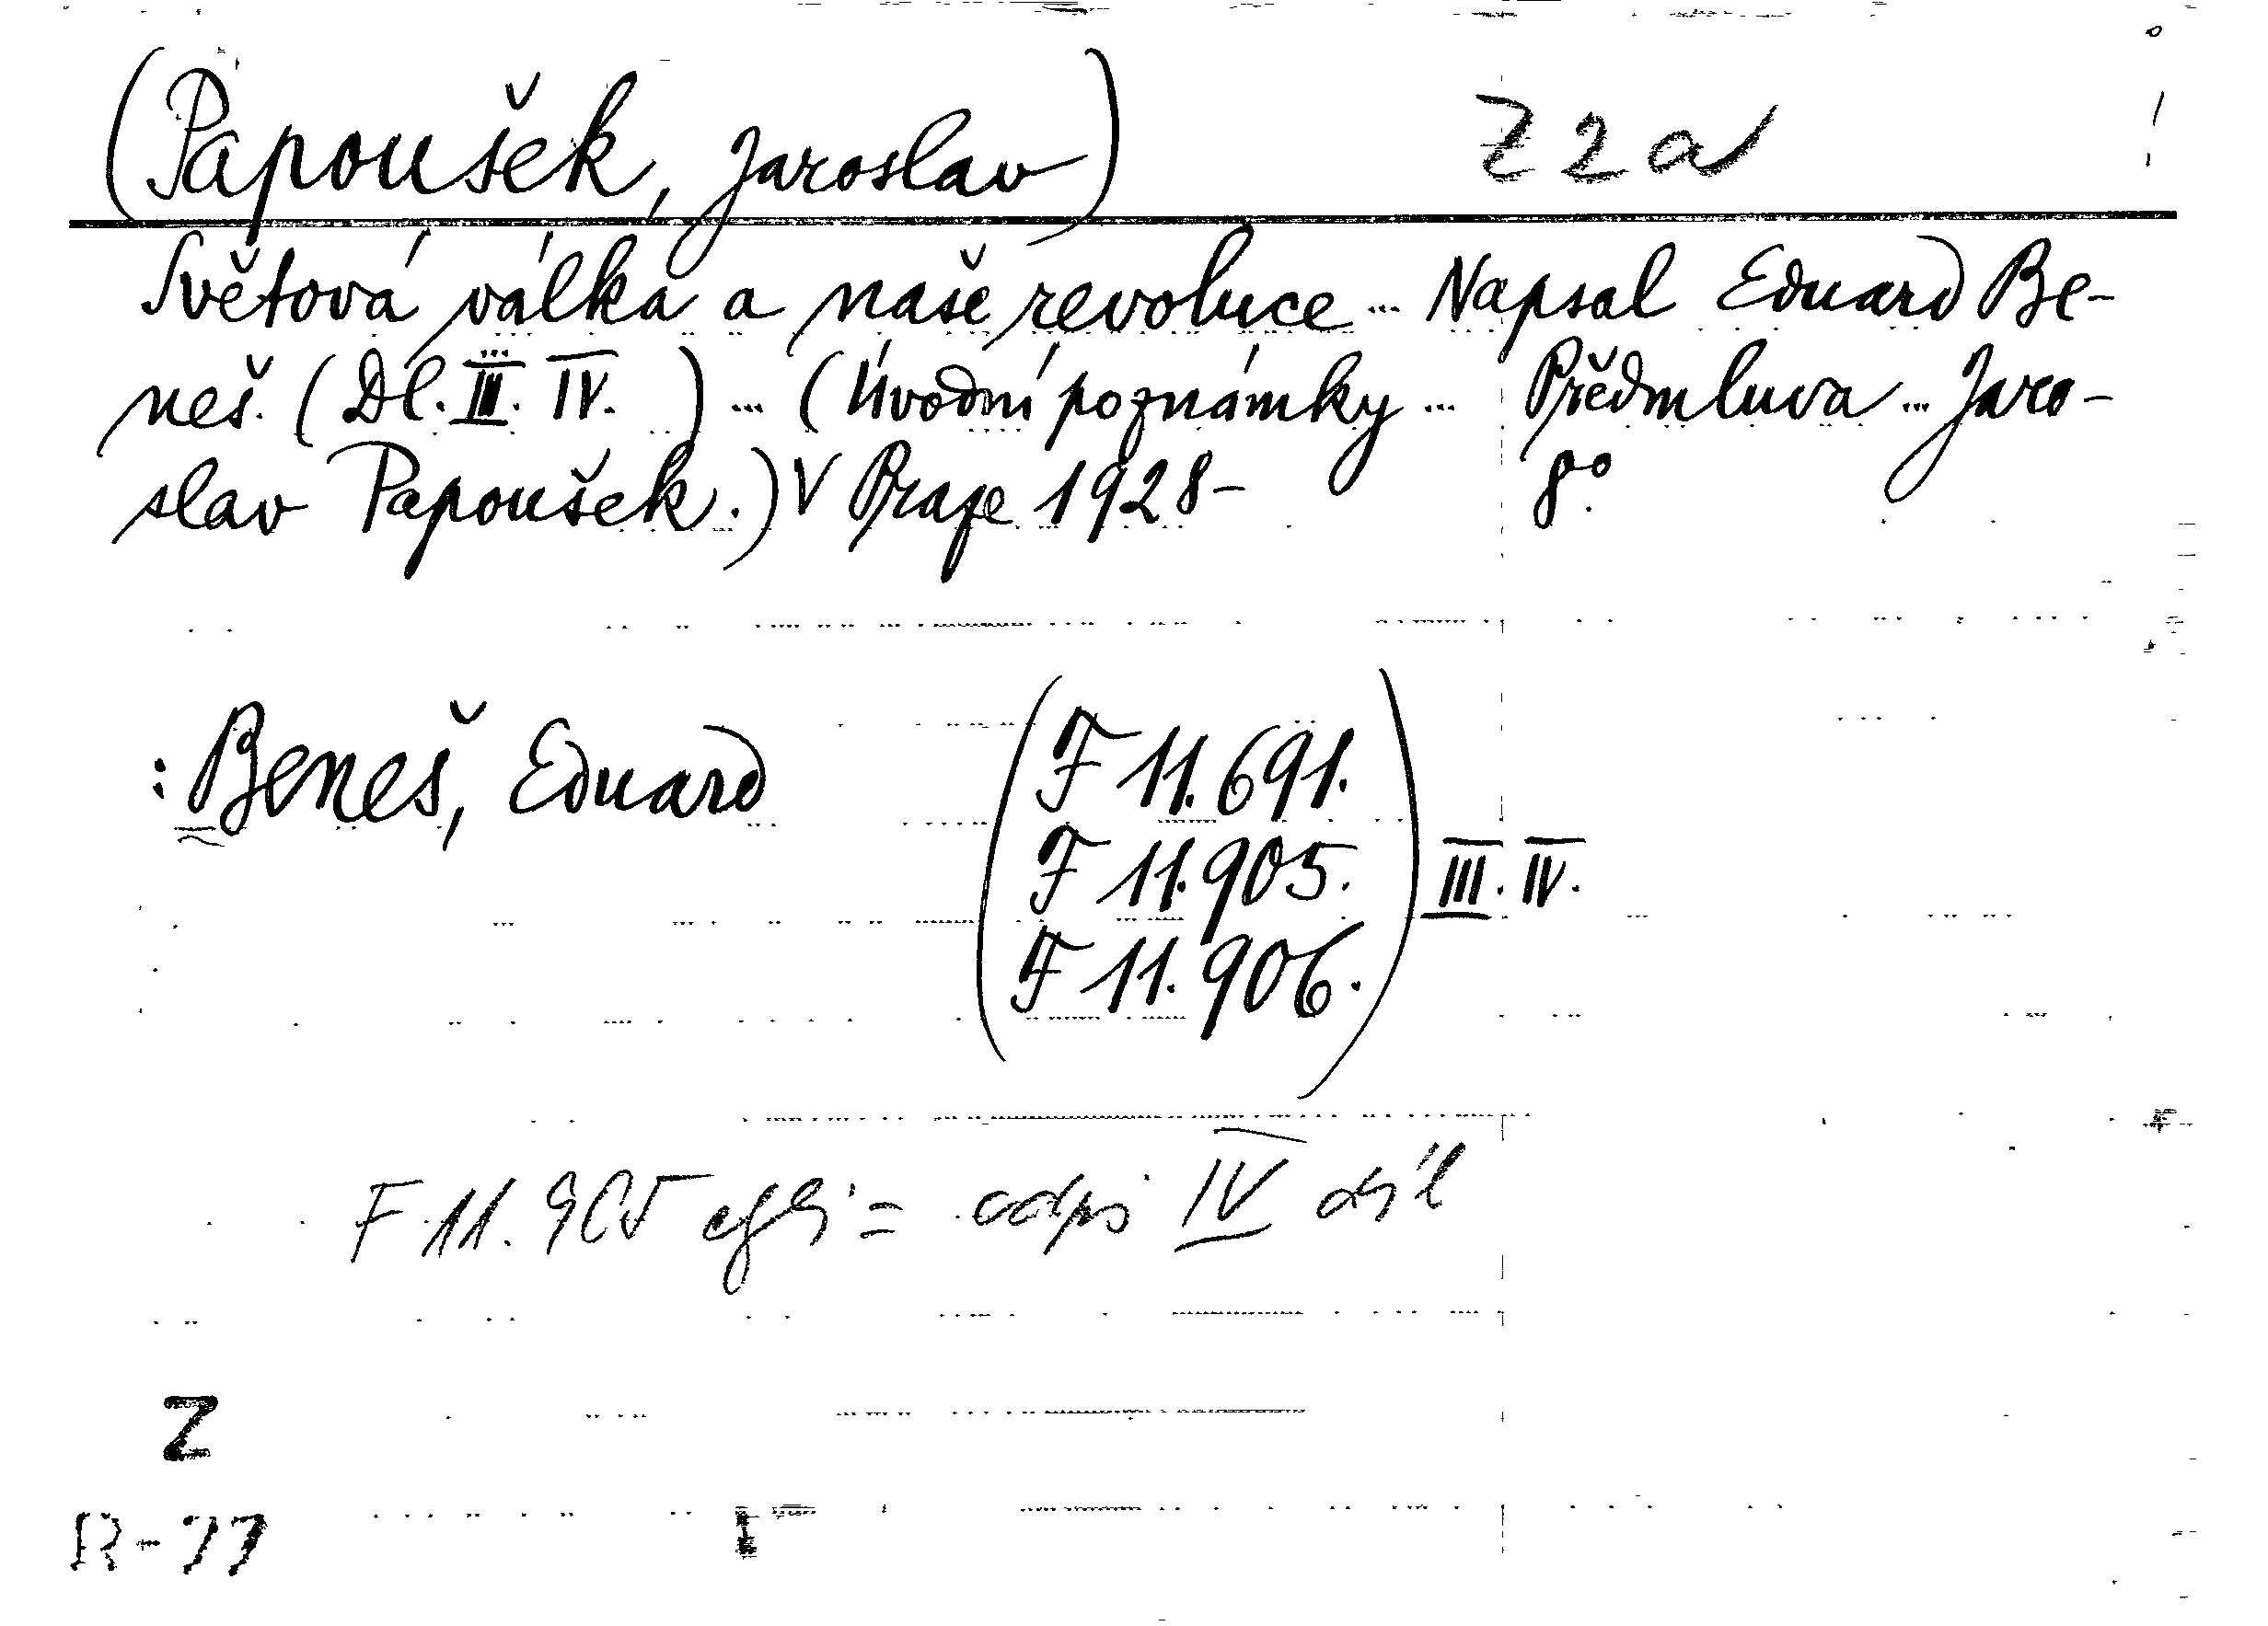 (Papoušek, Jaroslav) Z 2 a
Světová válka a naše revoluce ... Napsal Eduard Be-
neš. (Dl. III. IV. ) ... (Úvodní poznámky ... Předmluva ... Jaro-
slav Papoušek.) V Praze 1928- 8°.
: Beneš, Eduard
(F 11.691.
F 11.905.) III. IV.
F 11.906.
F 11.905 = odpis IV díl
Z
R-77